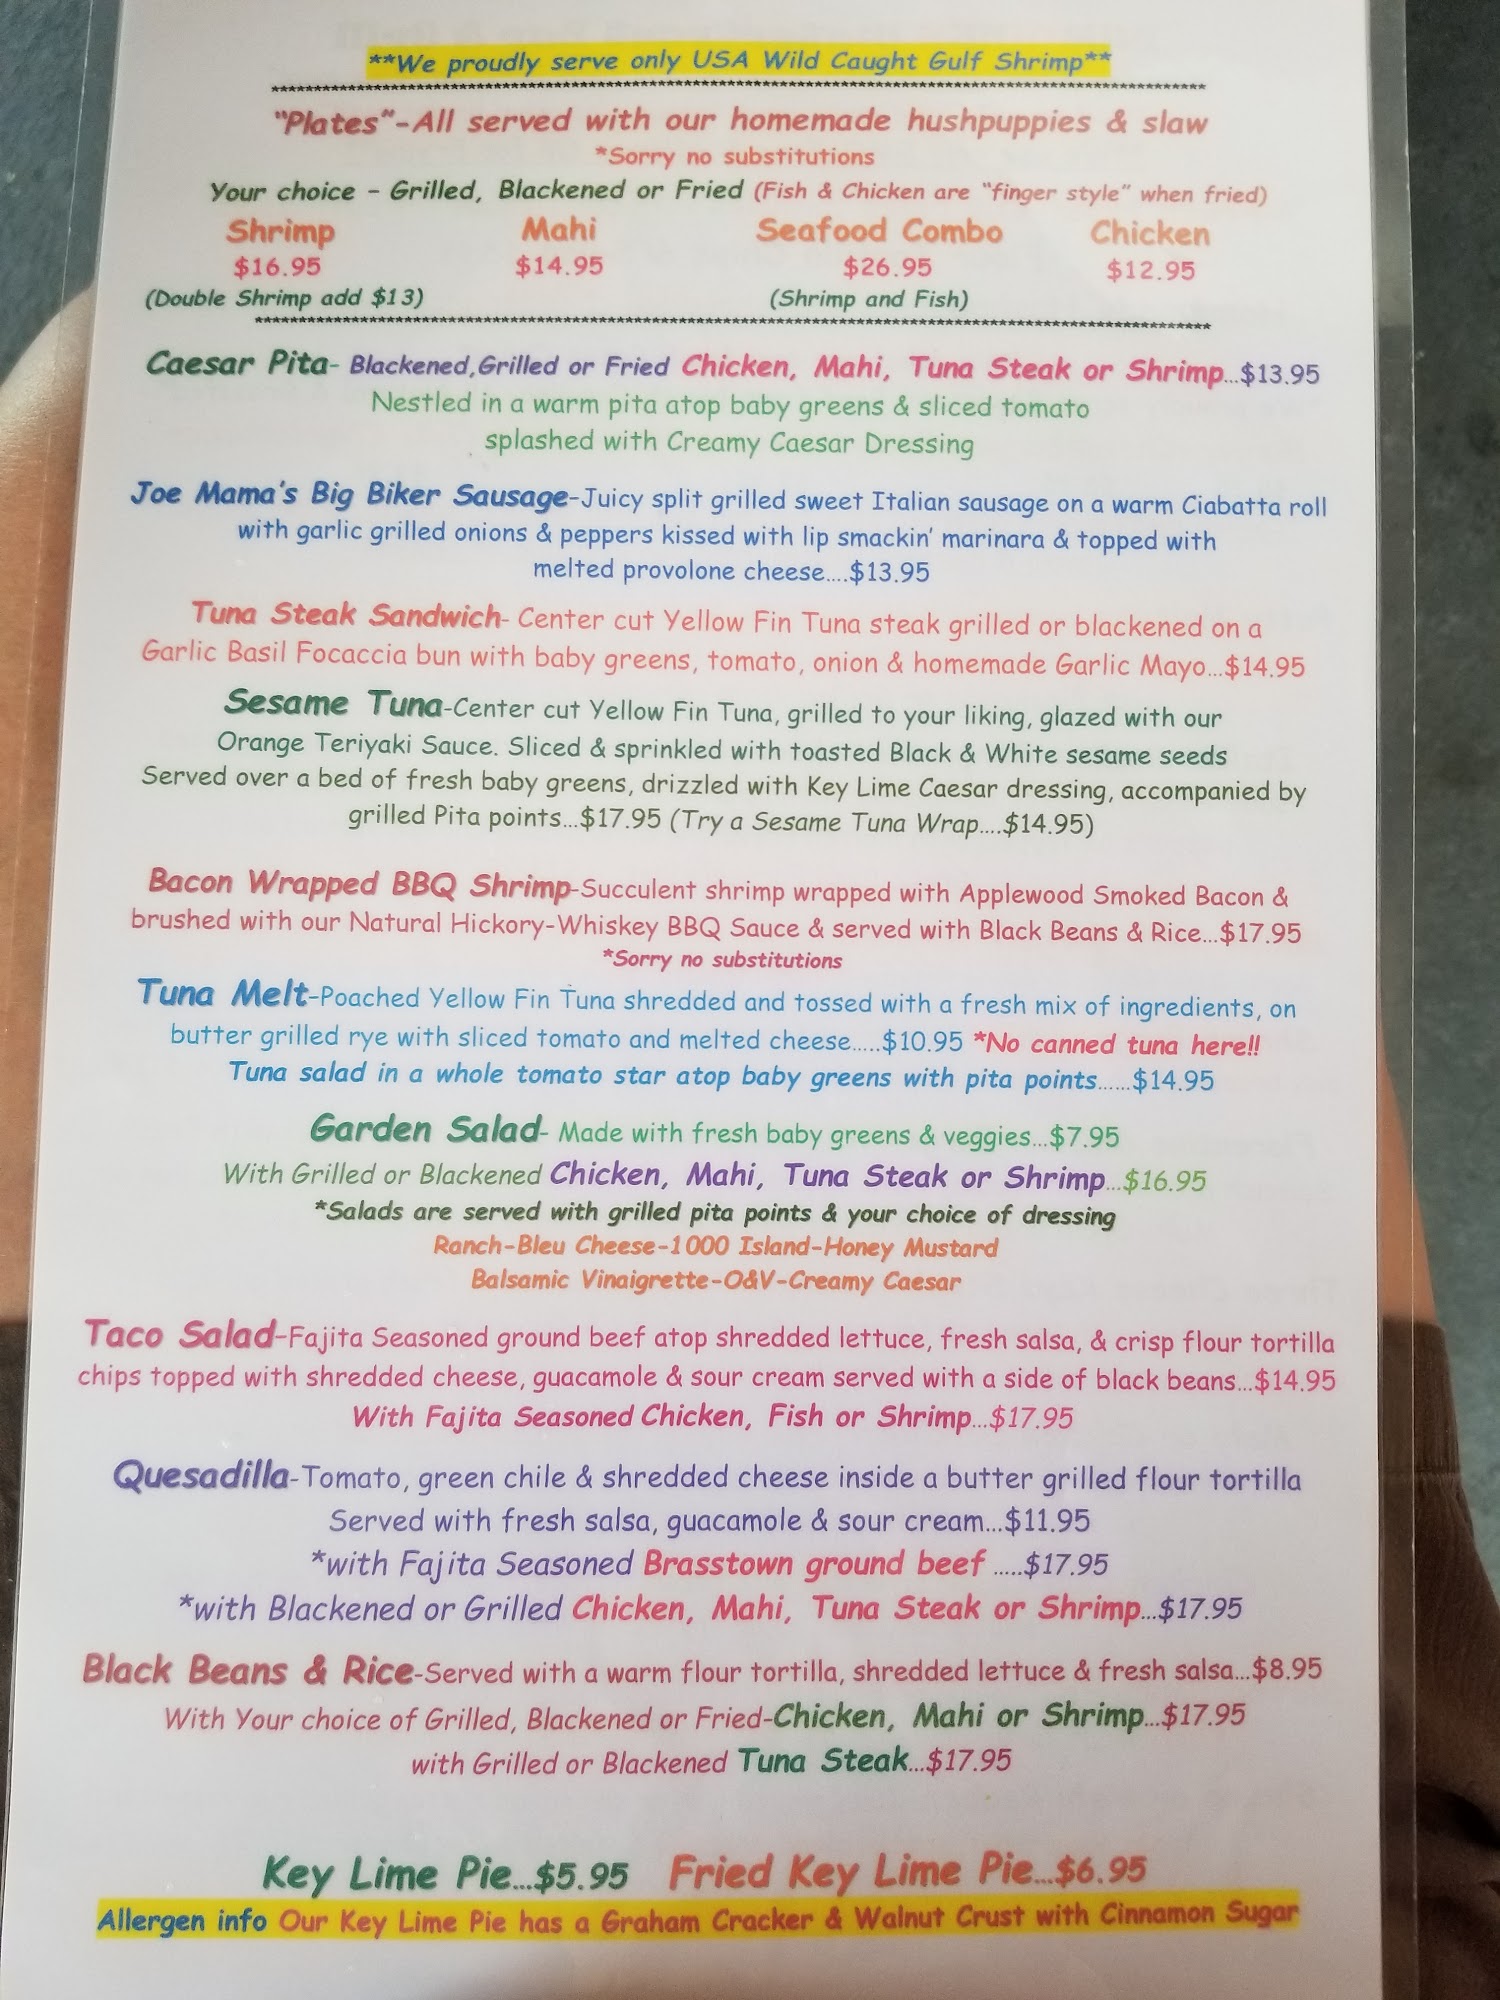 **We proudly serve only USA Wild Caught Gulf Shrimp**
"Plates"-All served with our homemade hushpuppies & slaw
*Sorry no substitutions
Your choice - Grilled, Blackened or Fried (Fish & Chicken are "finger style" when fried)
Shrimp Mahi Seafood Combo Chicken
$16.95 $14.95 $26.95 $12.95
(Double Shrimp add $13) (Shrimp and Fish)
Caesar Pita- Blackened,Grilled or Fried Chicken, Mahi, Tuna Steak or Shrimp...$13.95
Nestled in a warm pita atop baby greens & sliced tomato
splashed with Creamy Caesar Dressing
Joe Mama's Big Biker Sausage-Juicy split grilled sweet Italian sausage on a warm Ciabatta roll
with garlic grilled onions & peppers kissed with lip smackin' marinara & topped with
melted provolone cheese....$13.95
Tuna Steak Sandwich- Center cut Yellow Fin Tuna steak grilled or blackened on a
Garlic Basil Focaccia bun with baby greens, tomato, onion & homemade Garlic Mayo...$14.95
Sesame Tuna-Center cut Yellow Fin Tuna, grilled to your liking, glazed with our
Orange Teriyaki Sauce. Sliced & sprinkled with toasted Black & White sesame seeds
Served over a bed of fresh baby greens, drizzled with Key Lime Caesar dressing, accompanied by
grilled Pita points...$17.95 (Try a Sesame Tuna Wrap....$14.95)
Bacon Wrapped BBQ Shrimp-Succulent shrimp wrapped with Applewood Smoked Bacon &
brushed with our Natural Hickory-Whiskey BBQ Sauce & served with Black Beans & Rice...$17.95
*Sorry no substitutions
Tuna Melt-Poached Yellow Fin Tuna shredded and tossed with a fresh mix of ingredients, on
butter grilled rye with sliced tomato and melted cheese.....$10.95 *No canned tuna here!!
Tuna salad in a whole tomato star atop baby greens with pita points......$14.95
Garden Salad- Made with fresh baby greens & veggies...$7.95
With Grilled or Blackened Chicken, Mahi, Tuna Steak or Shrimp...$16.95
*Salads are served with grilled pita points & your choice of dressing
Ranch-Bleu Cheese-1000 Island-Honey Mustard
Balsamic Vinaigrette-O&V-Creamy Caesar
Taco Salad-Fajita Seasoned ground beef atop shredded lettuce, fresh salsa, & crisp flour tortilla
chips topped with shredded cheese, guacamole & sour cream served with a side of black beans...$14.95
With Fajita Seasoned Chicken, Fish or Shrimp...$17.95
Quesadilla-Tomato, green chile & shredded cheese inside a butter grilled flour tortilla
Served with fresh salsa, guacamole & sour cream...$11.95
*with Fajita Seasoned Brasstown ground beef .....$17.95
*with Blackened or Grilled Chicken, Mahi, Tuna Steak or Shrimp...$17.95
Black Beans & Rice-Served with a warm flour tortilla, shredded lettuce & fresh salsa...$8.95
With Your choice of Grilled, Blackened or Fried-Chicken, Mahi or Shrimp...$17.95
with Grilled or Blackened Tuna Steak...$17.95
Key Lime Pie...$5.95 Fried Key Lime Pie...$6.95
Allergen info Our Key Lime Pie has a Graham Cracker & Walnut Crust with Cinnamon Sugar